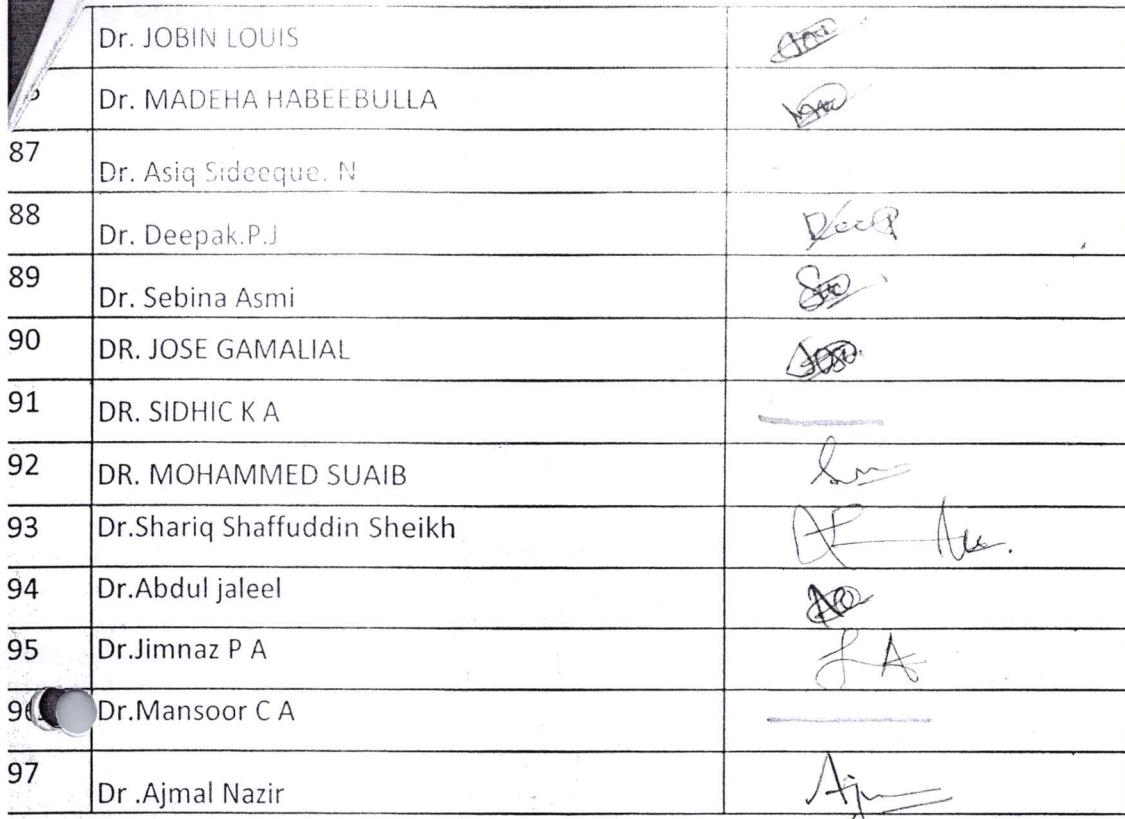 Dr. JOBIN LOUIS
Dr. MADEHA HABEEBULLA
87 Dr. Asiq Sideeque. N
88 Dr. Deepak.P.J
89 Dr. Sebina Asmi
90 DR. JOSE GAMALIAL
91 DR. SIDHIC K A
92 DR. MOHAMMED SUAIB
93 Dr.Shariq Shaffuddin Sheikh
94 Dr.Abdul jaleel
95 Dr.Jimnaz P A
96 Dr.Mansoor C A
97 Dr .Ajmal Nazir